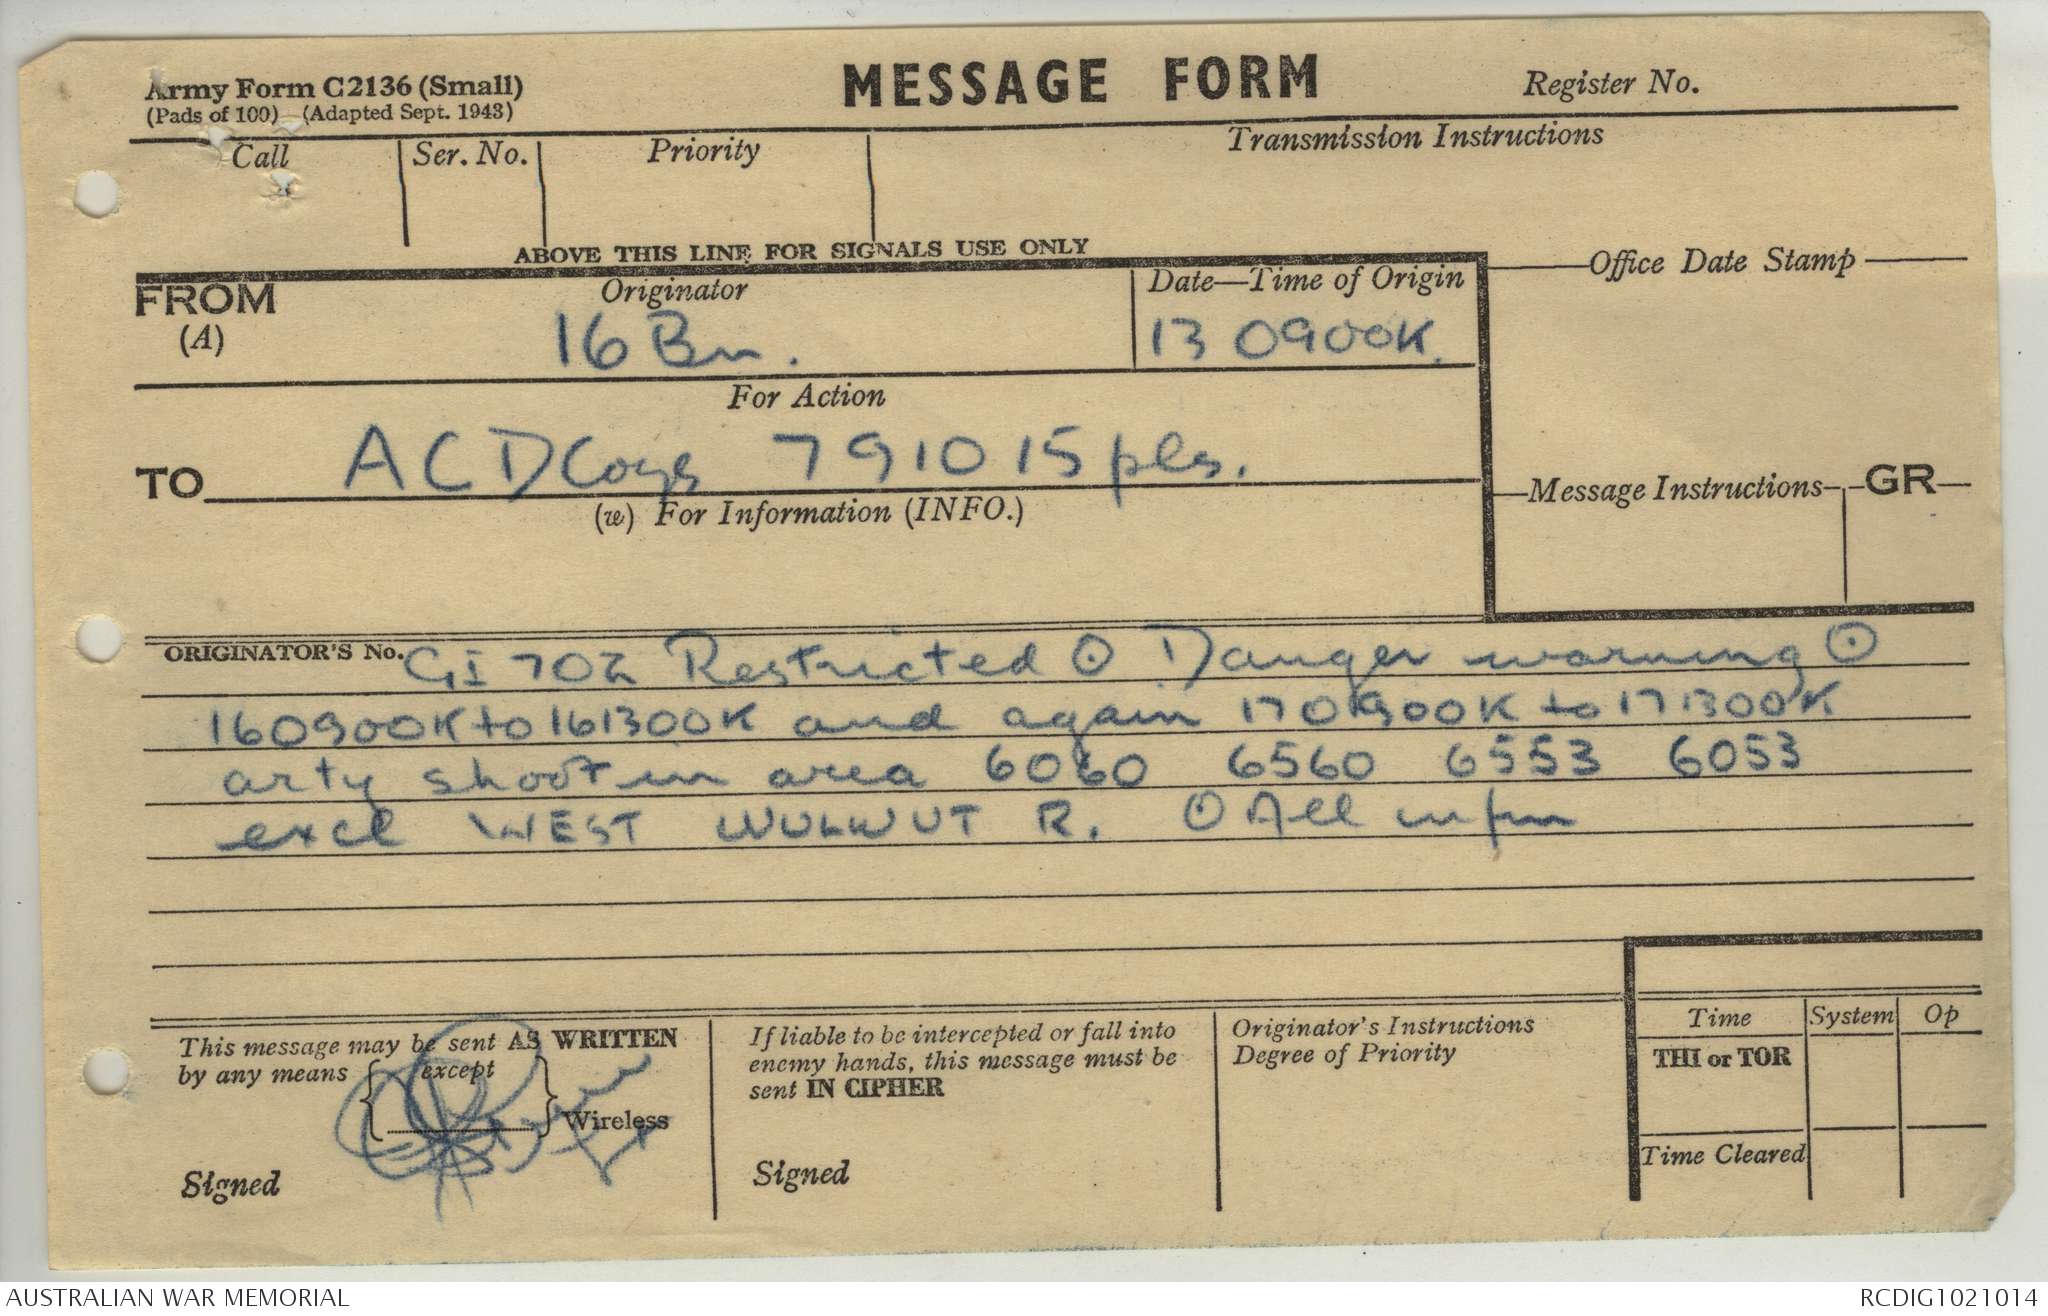 Army Form C2136 (Small)
(Pads of 100) (Adapted Sept. 1943)
MESSAGE FORM
Register No.
Call
Ser. No.
Priority
Transmission Instructions
ABOVE THIS LINE FOR SIGNALS USE ONLY
FROM
(A)
Originator
16 Bn.
Date—Time of Origin
13 0900K.
Office Date Stamp
For Action
TO
A C D Coys 7 9 10 15 pls.
(w) For Information (INFO.)
Message Instructions
GR
ORIGINATOR'S No. GI 702 Restricted ⊙ Danger warning ⊙
160900K to 161300K and again 170900K to 171300K
arty shoot in area 6060 6560 6553 6053
excl WEST WULWUT R. ⊙ All infm
This message may be sent AS WRITTEN
by any means except
Wireless
Signed
If liable to be intercepted or fall into
enemy hands, this message must be
sent IN CIPHER
Signed
Originator's Instructions
Degree of Priority
Time
System
Op
THI or TOR
Time Cleared
AUSTRALIAN WAR MEMORIAL
RCDIG1021014